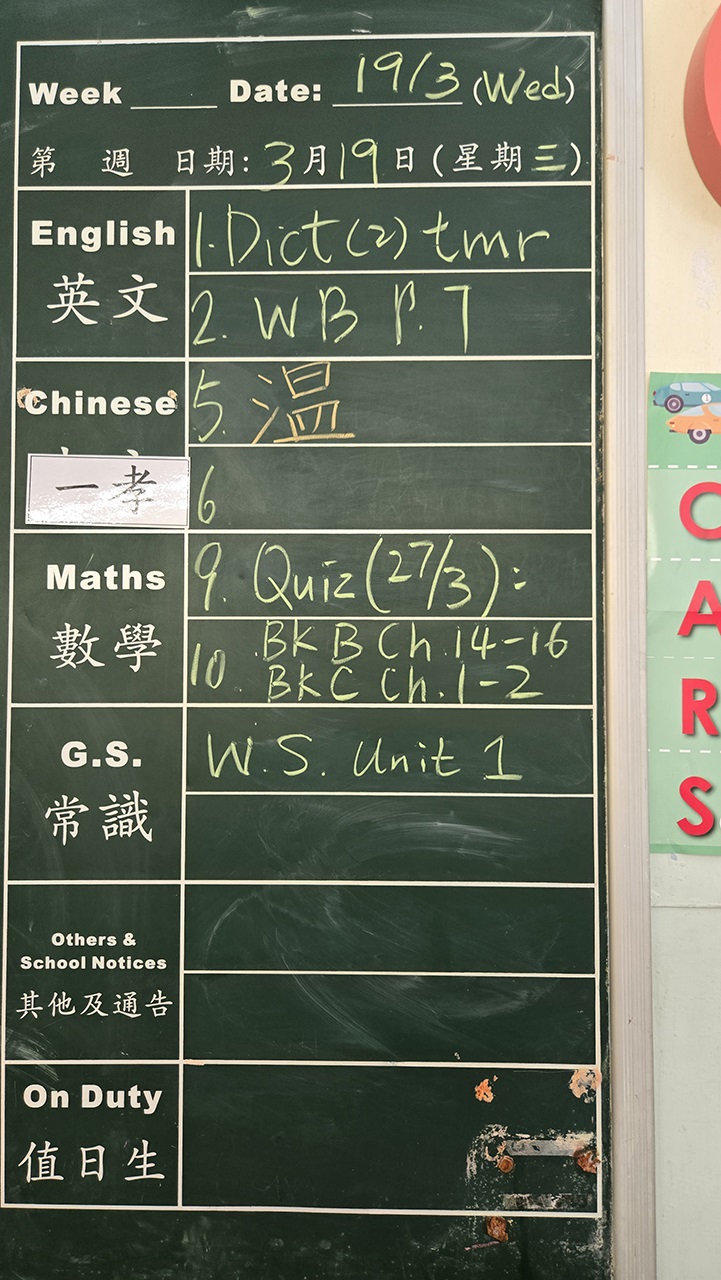 Week ____ Date: 19/3 (Wed)
第 週 日期: 3月19日(星期三)
English
英文
1. Dict (2) tmr
2. WB P. 7
Chinese
一孝
5. 温
6
Maths
數學
9. Quiz (27/3):
10. BK B Ch.14-16
BK C Ch.1-2
G.S.
常識
W.S. Unit 1
Others &
School Notices
其他及通告
On Duty
值日生
C
A
R
S